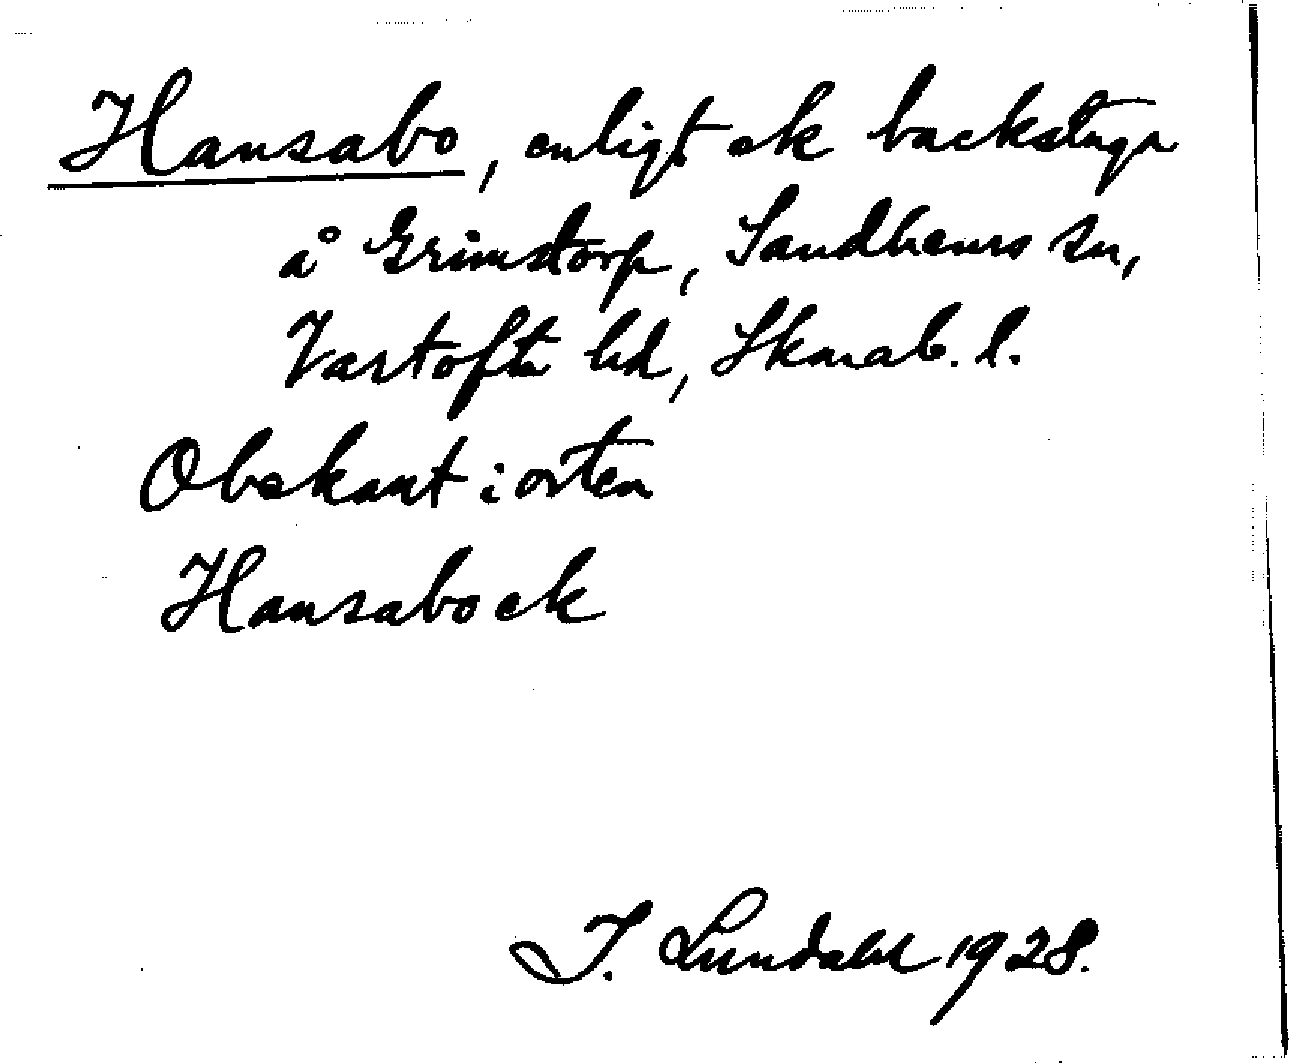 Hansabo, enligt ek backstuga
å Grimstorp, Sandhems sn,
Vartofta hd, Skarab. l.
Obekant i orten
Hansabo ek
I. Lundahl 1928.